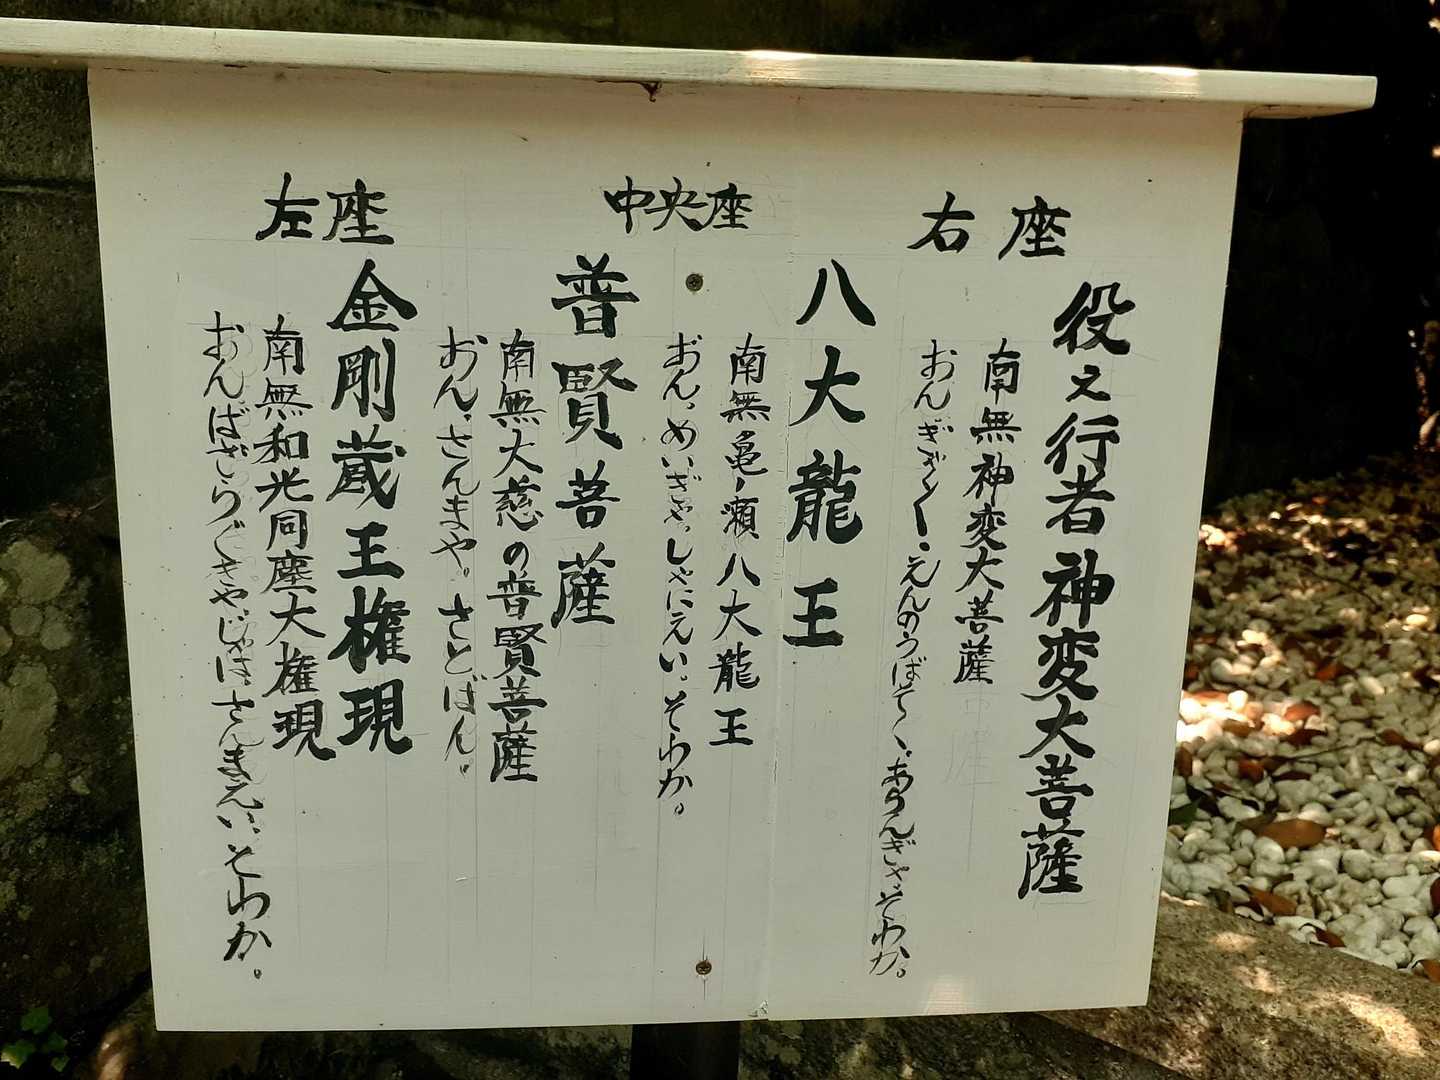 右座
役之行者神変大菩薩
南無神変大菩薩
おんぎゃく・えんのうばそく・あらんぎゃそわか。
中央座
八大龍王
南無亀ノ瀬八大龍王
おん。めいぎゃ。しゃにえい。そわか。
普賢菩薩
南無大慈の普賢菩薩
おん。さんまや。さとばん。
左座
金剛蔵王権現
南無和光同塵大権現
おん。ばざらくしゃ。じゃは。さんまえい。そわか。